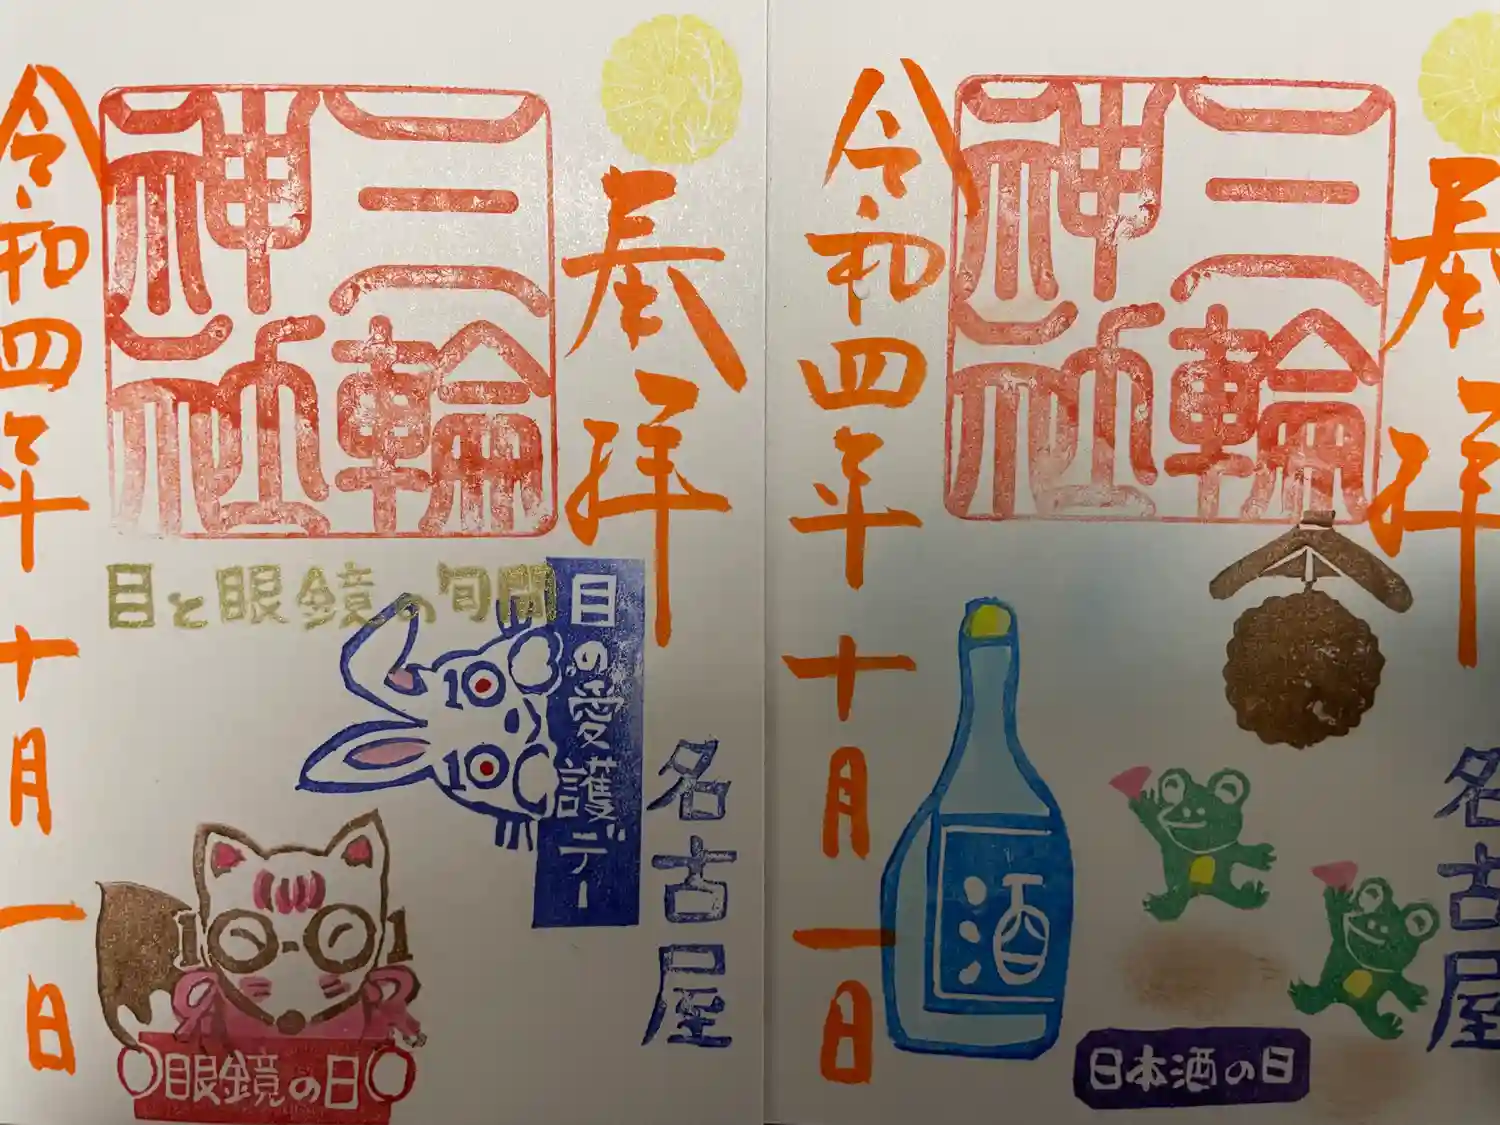 奉拝
三輪
神社
名古屋
目の愛護デー
目と眼鏡の旬間
眼鏡の日
令和四年十月一日
奉拝
三輪
神社
名古屋
酒
日本酒の日
令和四年十月一日